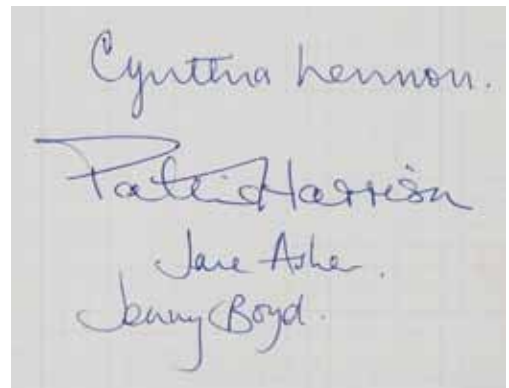 Cynthia Lennon.
Pattie Harrison
Jane Asher.
Jenny Boyd.